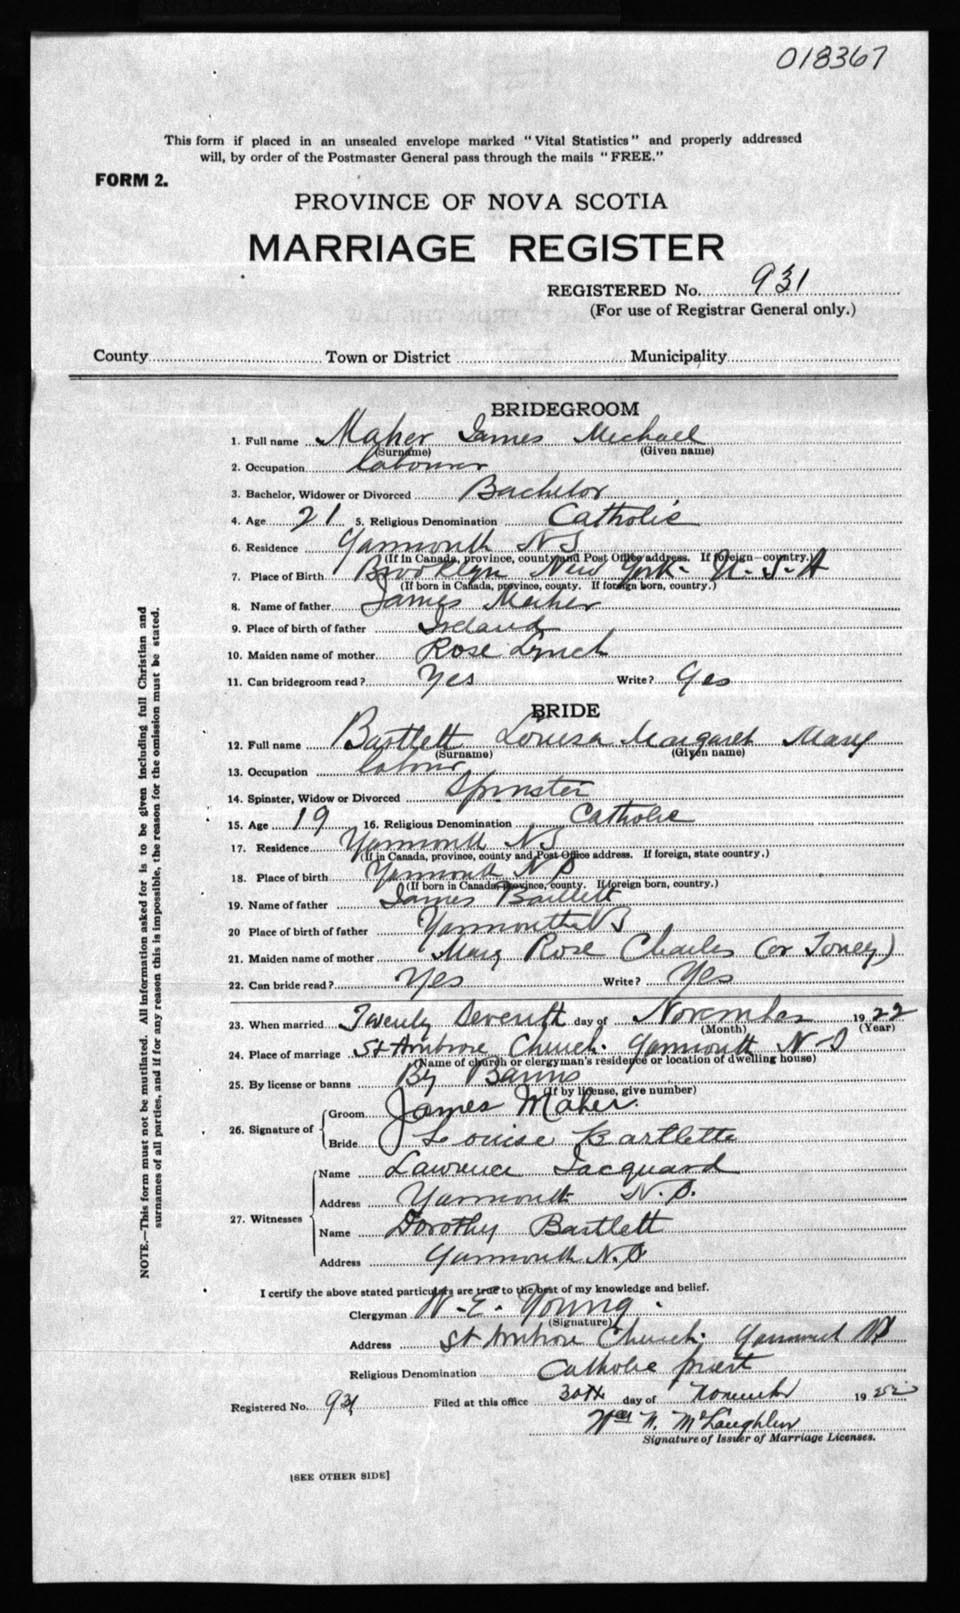 018367
This form if placed in an unsealed envelope marked "Vital Statistics" and properly addressed
will, by order of the Postmaster General pass through the mails "FREE."
FORM 2.
PROVINCE OF NOVA SCOTIA
MARRIAGE REGISTER
REGISTERED No. 931
(For use of Registrar General only.)
County Town or District Municipality
BRIDEGROOM
1. Full name Maher James Michael
(Surname) (Given name)
2. Occupation labourer
3. Bachelor, Widower or Divorced Bachelor
4. Age 21 5. Religious Denomination Catholic
6. Residence Yarmouth NS
(If in Canada, province, county and Post Office address. If foreign—country.)
7. Place of Birth Brooklyn New York. U.S.A
(If born in Canada, province, county. If foreign born, country.)
8. Name of father James Maher
9. Place of birth of father Ireland
10. Maiden name of mother Rose Lynch
11. Can bridegroom read? Yes Write? Yes
BRIDE
12. Full name Bartlett Louisa Margaret Mary
(Surname) (Given name)
13. Occupation labour
14. Spinster, Widow or Divorced Spinster
15. Age 19 16. Religious Denomination Catholic
17. Residence Yarmouth NS
(If in Canada, province, county and Post Office address. If foreign, state country.)
18. Place of birth Yarmouth NS
(If born in Canada, province, county. If foreign born, country.)
19. Name of father James Bartlett
20 Place of birth of father Yarmouth NS
21. Maiden name of mother Mary Rose Charles (or Toney)
22. Can bride read? Yes Write? Yes
23. When married Twenty Seventh day of November 1922
(Month) (Year)
24. Place of marriage St Ambrose Church. Yarmouth N-S
(Name of church or clergyman's residence or location of dwelling house)
25. By license or banns By Banns
(If by license, give number)
26. Signature of Groom James Maher.
Bride Louise Bartlette
27. Witnesses Name Lawrence Jacquard
Address Yarmouth N.S.
Name Dorothy Bartlett
Address Yarmouth N.S
I certify the above stated particulars are true to the best of my knowledge and belief.
Clergyman W-E. Young.
(Signature)
Address St Ambrose Church. Yarmouth NS
Religious Denomination Catholic priest
Registered No. 931 Filed at this office 30th day of November 1922
Wm N. McLaughlin
Signature of Issuer of Marriage Licenses.
[SEE OTHER SIDE]
NOTE.—This form must not be mutilated. All information asked for is to be given including full Christian and
surnames of all parties, and if for any reason this is impossible, the reason for the omission must be stated.